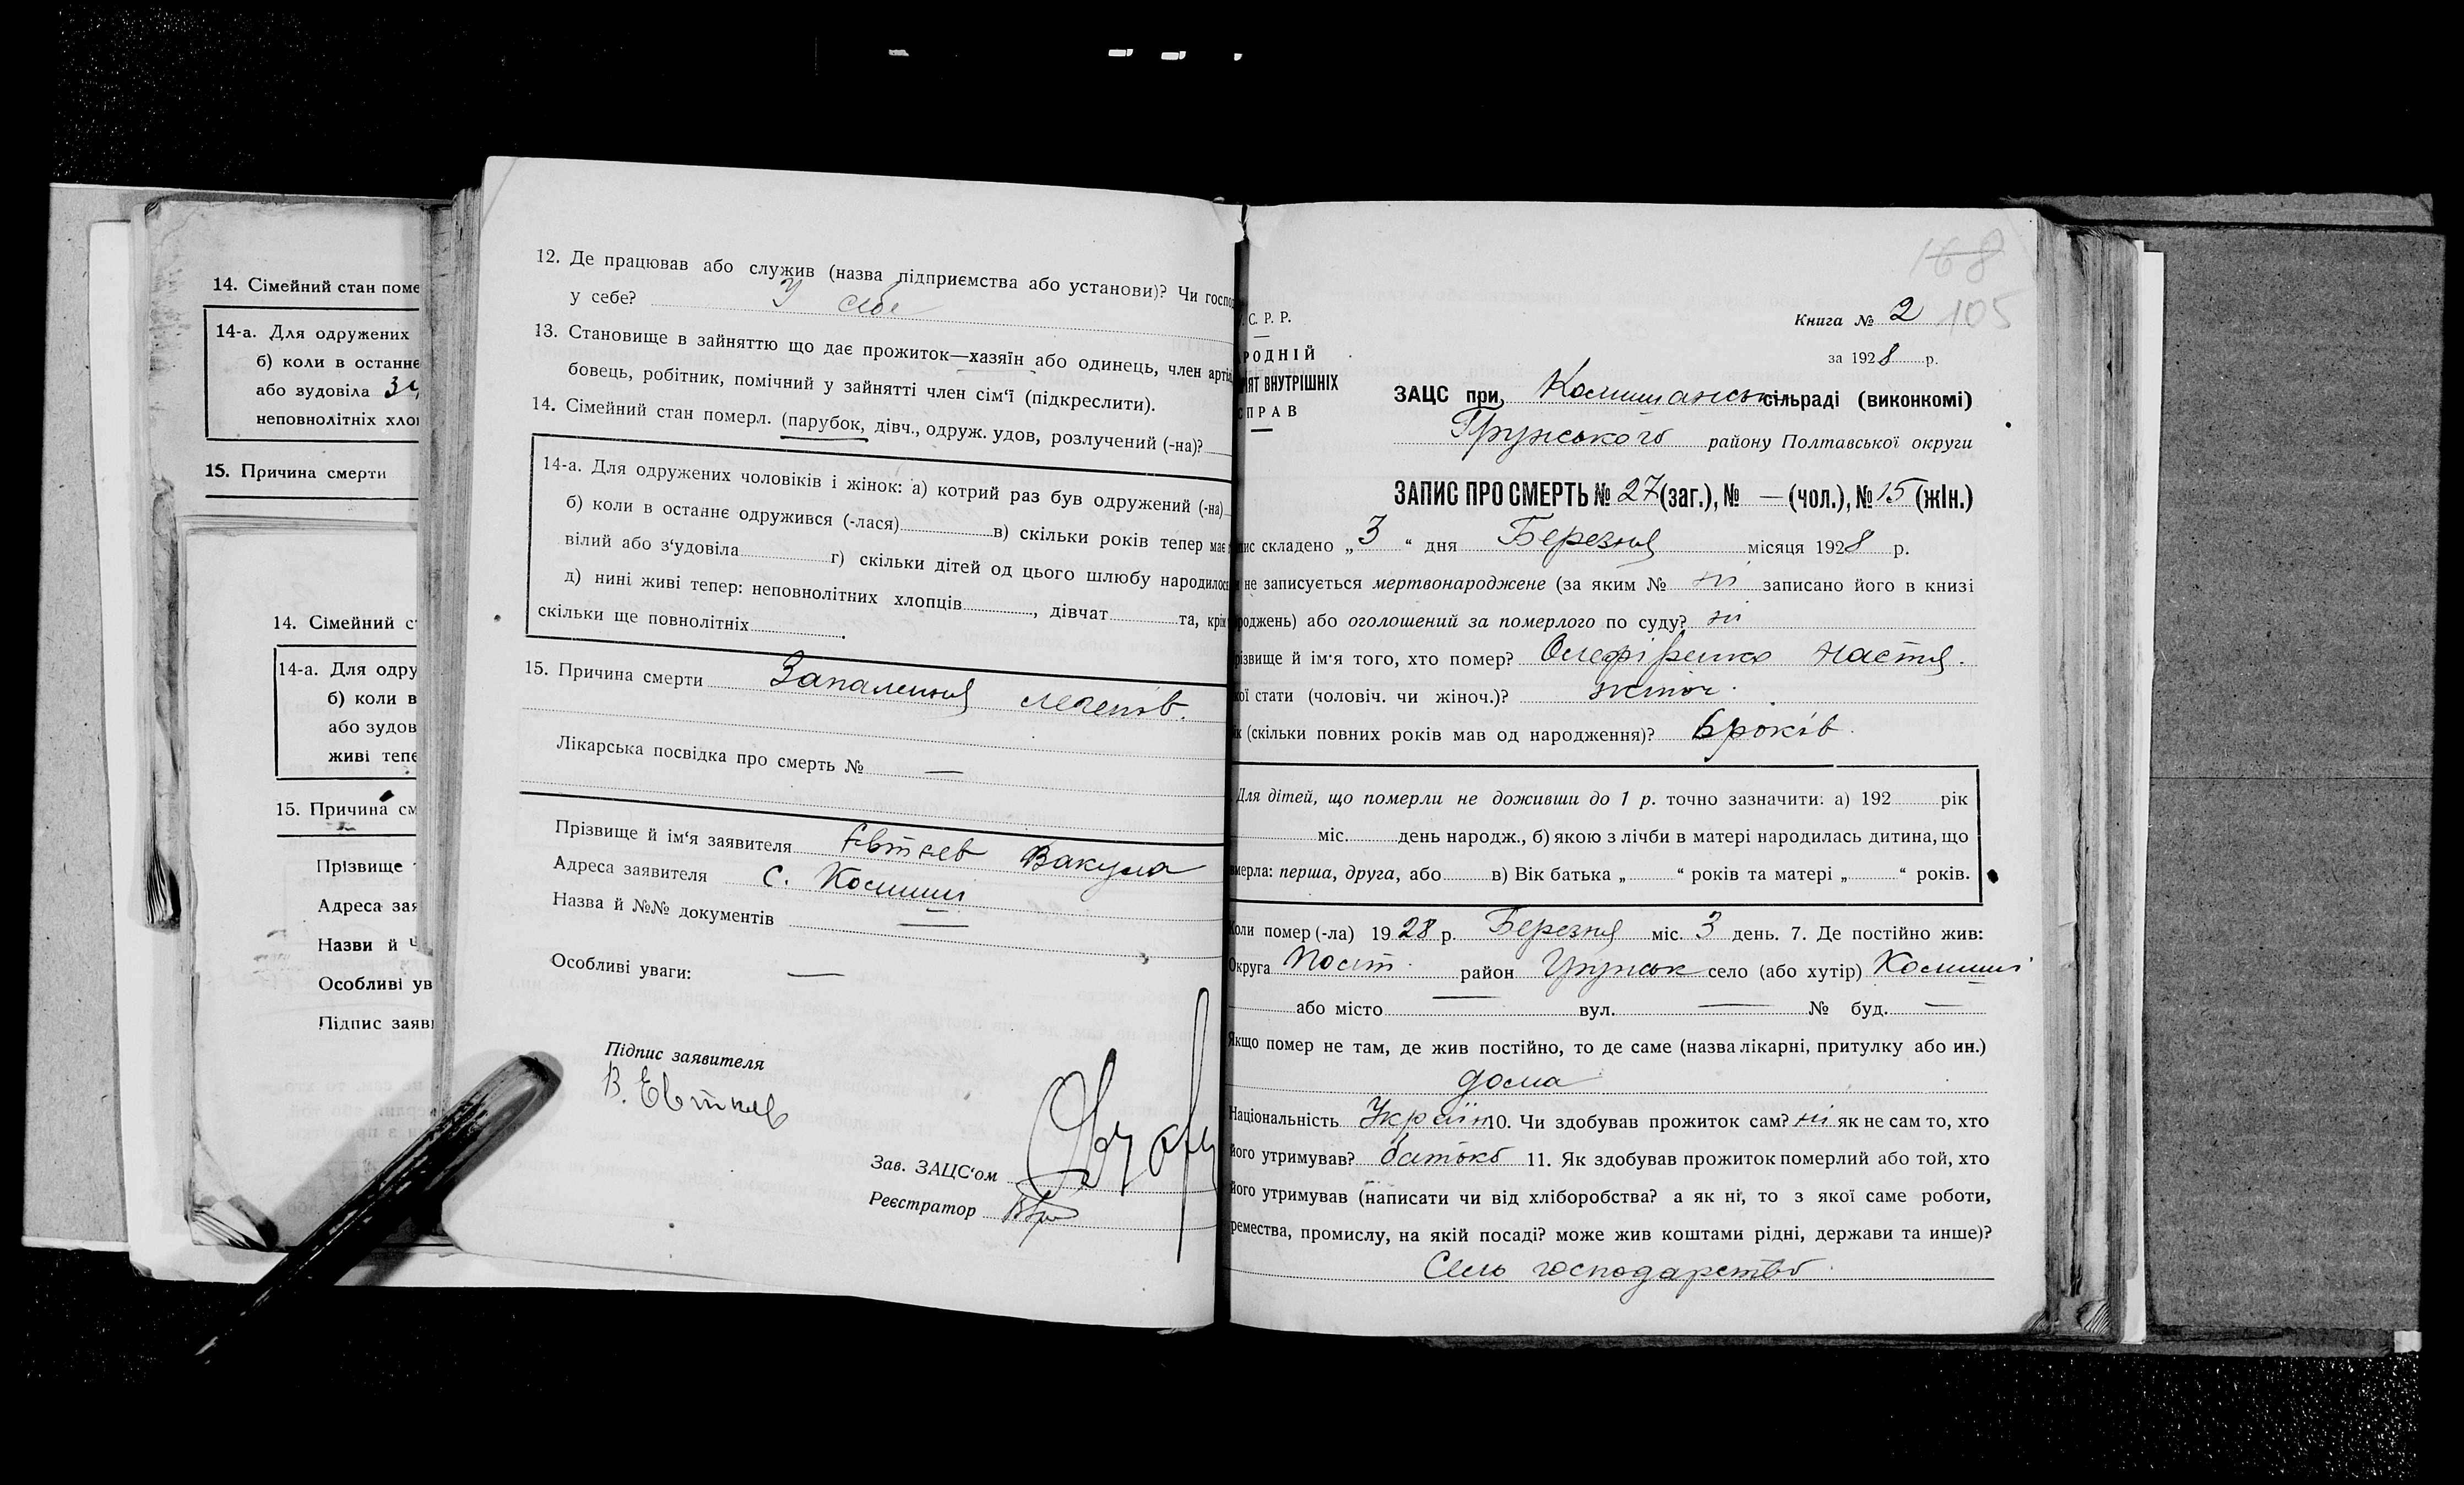 14. Сімейний стан поме
14-а. Для одружених
б) коли в останнє
або зудовіла
неповнолітніх хло
15. Причина смерти
14. Сімейний ст
14-а. Для одру
б) коли в
або зудов
живі тепе
15. Причина см
Прізвище
Адреса зая
Назви й
Особливі ув
Підпис заяв
12. Де працював або служив (назва підприємства або установи)? Чи госпо
у себе? У себе
13. Становище в зайняттю що дає прожиток—хазяїн або одинець, член артіл
бовець, робітник, помічний у зайнятті член сім‘ї (підкреслити).
14. Сімейний стан померл. (парубок, дівч., одруж. удов, розлучений (-на)?
14-а. Для одружених чоловіків і жінок: а) котрий раз був одружений (-на)
б) коли в останнє одружився (-лася) в) скільки років тепер має
вілий або з‘удовіла г) скільки дітей од цього шлюбу народилос
д) нині живі тепер: неповнолітних хлопців , дівчат та, крім
скільки ще повнолітніх .
15. Причина смерти Запалення легенів.
Лікарська посвідка про смерть № —
Прізвище й ім‘я заявителя Євтєєв Вакула
Адреса заявителя с. Комиші
Назва й №№ документів —
Особливі уваги: —
Підпис заявителя
Зав. ЗАЦС‘ом
Реєстратор
168
105
С. Р. Р.
РОДНІЙ
ІЯТ ВНУТРІШНІХ
ПРАВ
Книга № 2
за 1928 р.
ЗАЦС при Комишанськ сільраді (виконкомі)
Грунського району Полтавської округи
ЗАПИС ПРО СМЕРТЬ № 27 (заг.), № — (чол.), № 15 (жін.)
пис складено „3“ дня Березня місяця 1928 р.
не записується мертвонароджене (за яким № ні записано його в книзі
роджень) або оголошений за померлого по суду? ні
різвище й ім‘я того, хто помер? Олефіренко Настя.
кої стати (чоловіч. чи жіноч.)? жіноч.
ік (скільки повних років мав од народження)? 6 років.
Для дітей, що померли не доживши до 1 р. точно зазначити: а) 192 рік
міс. день народж., б) якою з лічби в матері народилась дитина, що
мерла: перша, друга, або в) Вік батька „ “ років та матері „ “ років.
Коли помер (-ла) 1928 р. Березня міс. 3 день. 7. Де постійно жив:
Округа Полт. район Грунськ село (або хутір) Комиші
або місто — вул. — № буд. —
Якщо помер не там, де жив постійно, то де саме (назва лікарні, притулку або ин.)
дома
Національність Україн 10. Чи здобував прожиток сам? ні як не сам то, хто
його утримував? батько 11. Як здобував прожиток померлий або той, хто
його утримував (написати чи від хліборобства? а як ні, то з якої саме роботи,
ремества, промислу, на якій посаді? може жив коштами рідні, держави та инше)?
Сель господарство